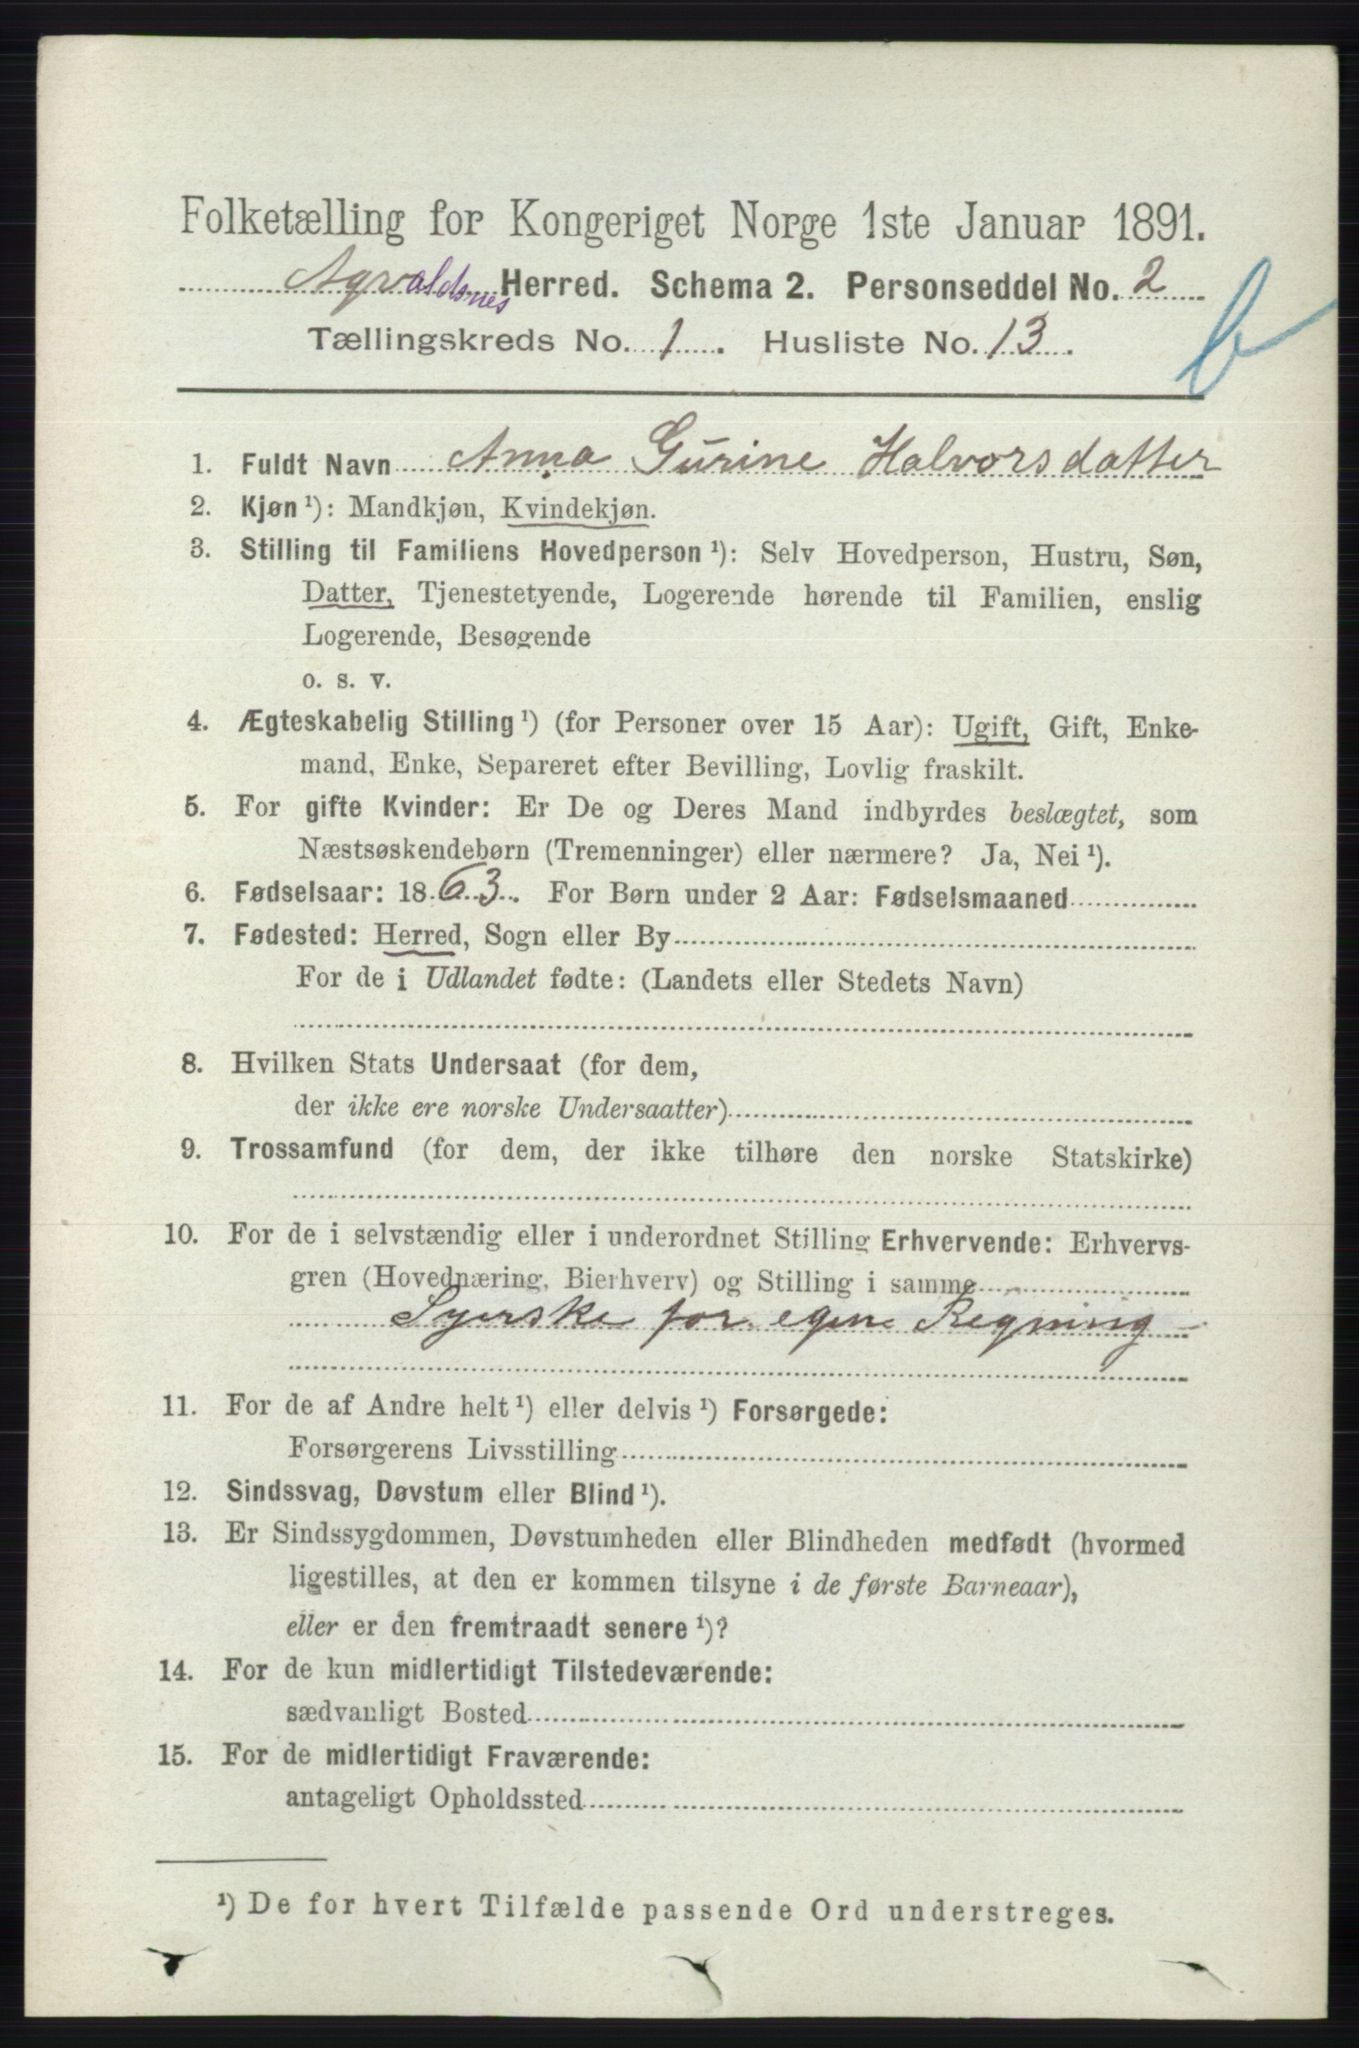 Folketælling for Kongeriget Norge 1ste Januar 1891.
Agvaldsnes Herred. Schema 2. Personseddel No. 2
Tællingskreds No. 1. Husliste No. 13.
b
1. Fuldt Navn Anna Gurine Halvorsdatter
2. Kjøn ¹): Mandkjøn, Kvindekjøn.
3. Stilling til Familiens Hovedperson ¹): Selv Hovedperson, Hustru, Søn,
Datter, Tjenestetyende, Logerende hørende til Familien, enslig
Logerende, Besøgende
o. s. v.
4. Ægteskabelig Stilling ¹) (for Personer over 15 Aar): Ugift, Gift, Enke-
mand, Enke, Separeret efter Bevilling, Lovlig fraskilt.
5. For gifte Kvinder: Er De og Deres Mand indbyrdes beslægtet, som
Næstsøskendebørn (Tremenninger) eller nærmere? Ja, Nei ¹).
6. Fødselsaar: 1863. For Børn under 2 Aar: Fødselsmaaned
7. Fødested: Herred, Sogn eller By
For de i Udlandet fødte: (Landets eller Stedets Navn)
8. Hvilken Stats Undersaat (for dem,
der ikke ere norske Undersaatter)
9. Trossamfund (for dem, der ikke tilhøre den norske Statskirke)
10. For de i selvstændig eller i underordnet Stilling Erhvervende: Erhvervs-
gren (Hovednæring, Bierhverv) og Stilling i samme
Syerske for egen Regning
11. For de af Andre helt ¹) eller delvis ¹) Forsørgede:
Forsørgerens Livsstilling
12. Sindssvag, Døvstum eller Blind ¹).
13. Er Sindssygdommen, Døvstumheden eller Blindheden medfødt (hvormed
ligestilles, at den er kommen tilsyne i de første Barneaar),
eller er den fremtraadt senere ¹)?
14. For de kun midlertidigt Tilstedeværende:
sædvanligt Bosted
15. For de midlertidigt Fraværende:
antageligt Opholdssted
¹) De for hvert Tilfælde passende Ord understreges.